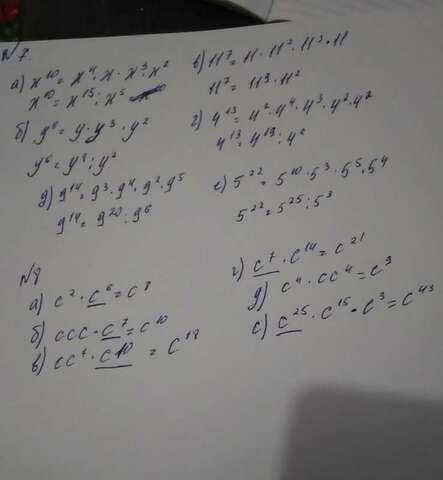 №7
а) x¹⁰ = x⁴ · x · x³ · x²
x¹⁰ = x¹⁵ : x⁵
б) y⁶ = y · y³ · y²
y⁶ = y⁸ : y²
д) 9¹⁴ = 9³ · 9⁴ · 9² · 9⁵
9¹⁴ = 9²⁰ : 9⁶
в) 11⁷ = 11 · 11² · 11³ · 11
11⁷ = 11⁹ · 11²
г) 4¹³ = 4² · 4⁴ · 4³ · 4² · 4²
е) 5²² = 5¹⁰ · 5³ · 5⁵ · 5⁴
5²² = 5²⁵ : 5³
№8
а) c² · c⁶ = c⁸
б) ccc · c⁷ = c¹⁰
в) cc⁷ · c10 = c¹⁸
г) c⁷ · c¹⁴ = c²¹
д) c⁴ · cc⁴ = c³
е) c²⁵ · c¹⁵ · c³ = c⁴³